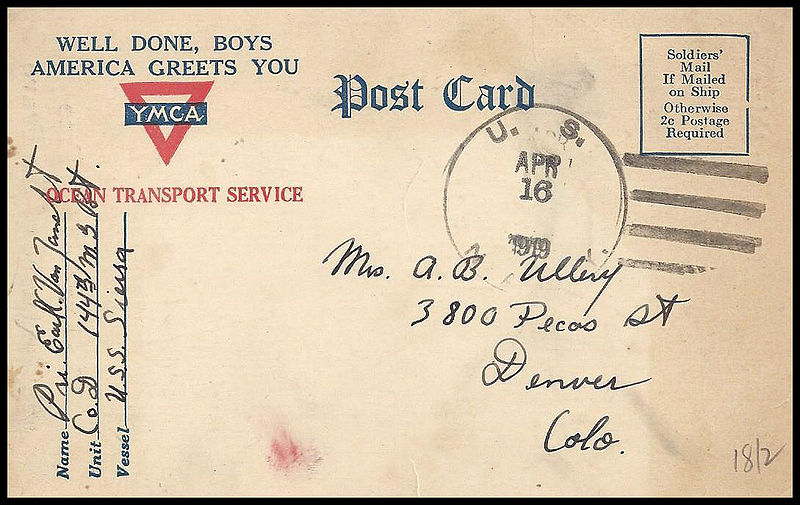 WELL DONE, BOYS
AMERICA GREETS YOU
YMCA
OCEAN TRANSPORT SERVICE
Post Card
Soldiers'
Mail
If Mailed
on Ship
Otherwise
2c Postage
Required
U. S.
APR
16
1919
Mrs. A. B. Ullery
3800 Pecos St
Denver
Colo.
Name Pri. Earl K. Van Zandt
Unit Co. D 144th M G Bat.
Vessel U.S.S. Sierra
18/2